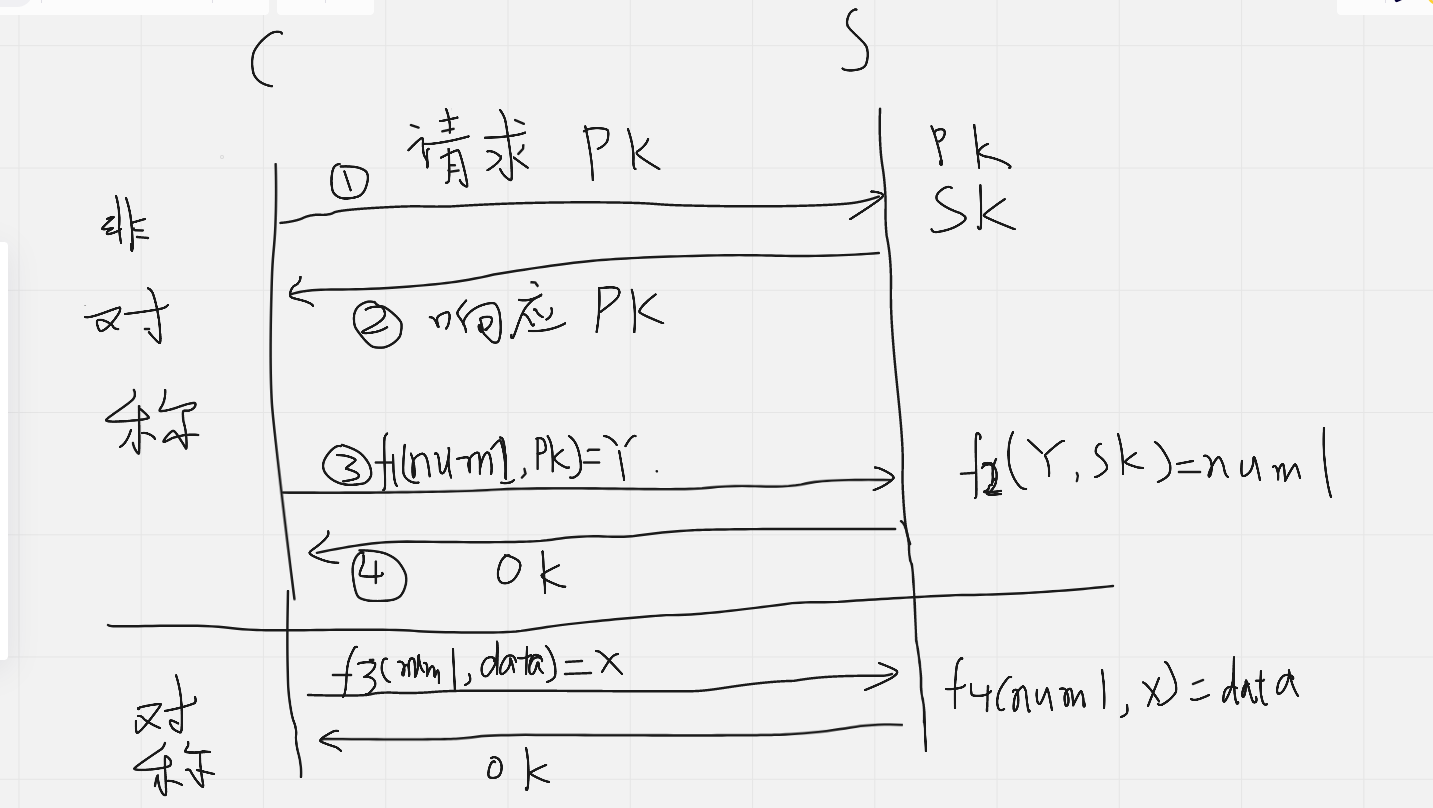 C
S
① 请求 PK
PK
SK
② 响应 PK
非
对
称
③ f1(num1, PK)=Y.
f2(Y, SK)=num1
④ ok
f3(num1, data)=x
f4(num1, x)=data
对
称
ok